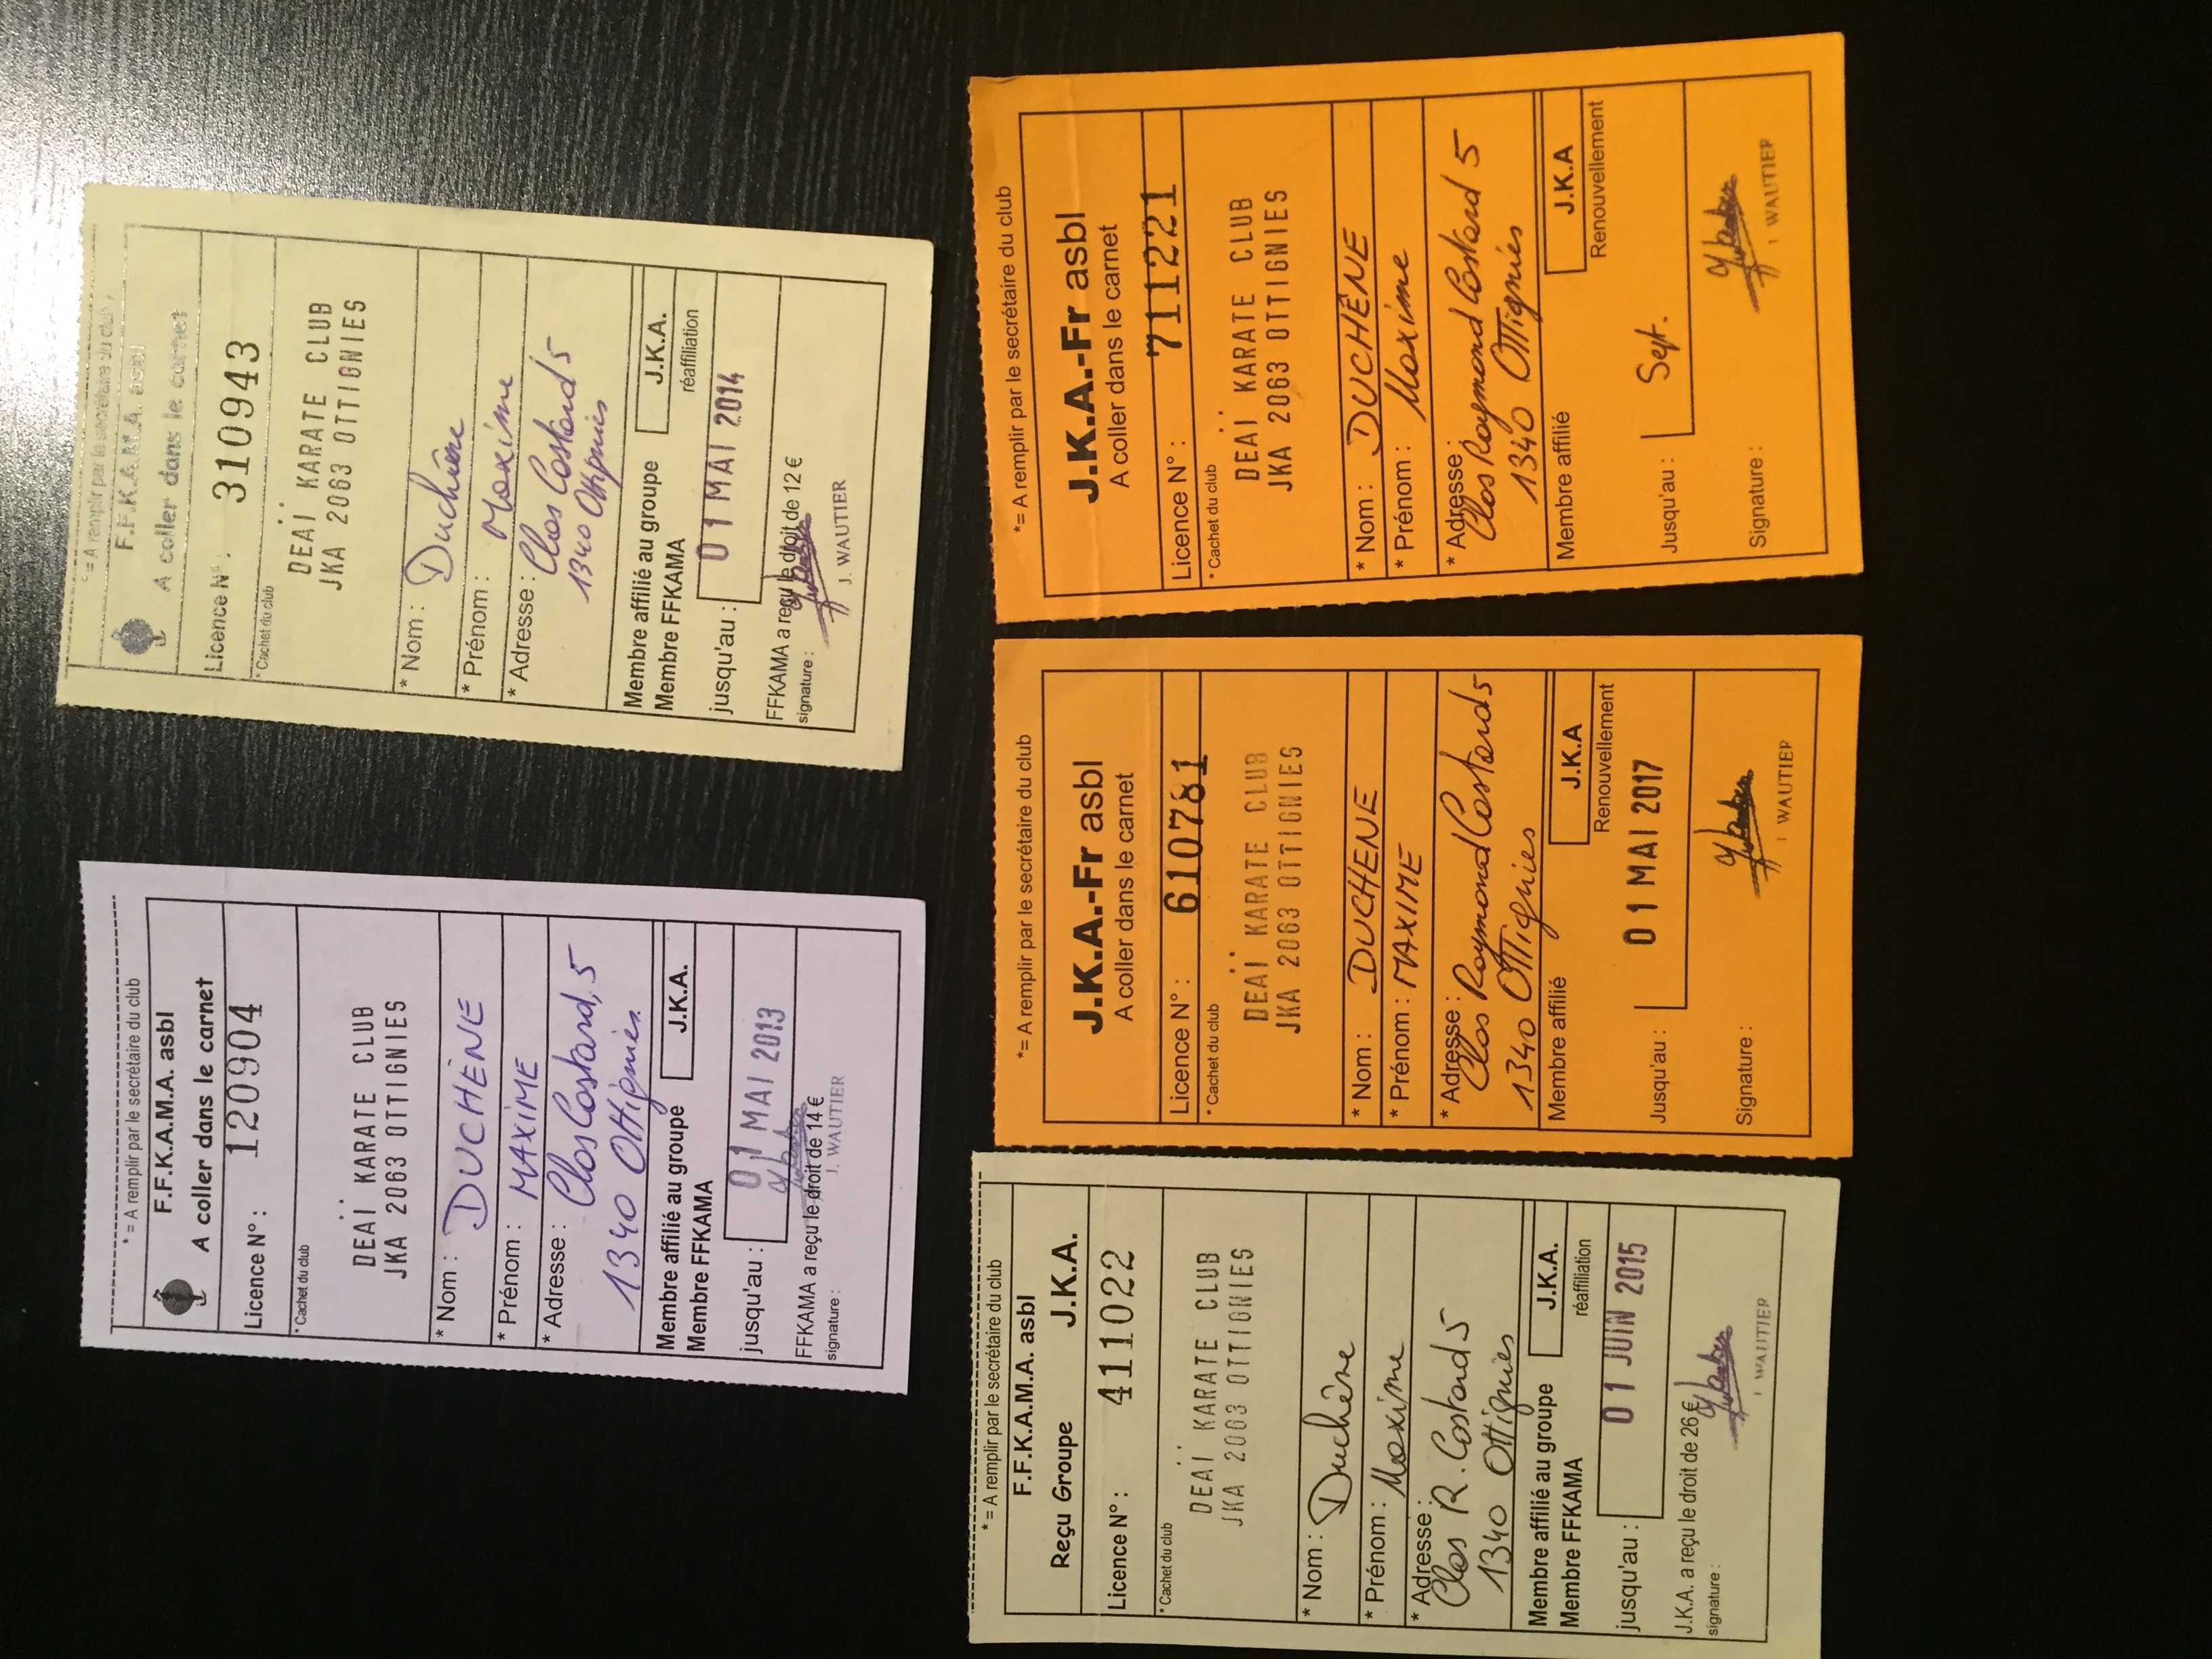 * = A remplir par le secrétaire du club
F.F.K.A.M.A. asbl
A coller dans le carnet
Licence N° : 120904
* Cachet du club
DEAÏ KARATE CLUB
JKA 2063 OTTIGNIES
* Nom : DUCHÈNE
* Prénom : MAXIME
* Adresse : Clos Costard, 5
1340 Ottignies
Membre affilié au groupe J.K.A.
Membre FFKAMA
jusqu'au : 01 MAI 2013
FFKAMA a reçu le droit de 14 €
signature : J. WAUTIER
* = A remplir par le secrétaire du club
F.F.K.A.M.A. asbl
A coller dans le carnet
Licence N° : 310943
* Cachet du club
DEAÏ KARATE CLUB
JKA 2063 OTTIGNIES
* Nom : Duchêne
* Prénom : Maxime
* Adresse : Clos Costard 5
1340 Ottignies
Membre affilié au groupe J.K.A.
Membre FFKAMA réaffiliation
jusqu'au : 01 MAI 2014
FFKAMA a reçu le droit de 12 €
signature :
J. WAUTIER
* = A remplir par le secrétaire du club
F.F.K.A.M.A. asbl
Reçu Groupe J.K.A.
Licence N° : 411022
* Cachet du club
DEAÏ KARATE CLUB
JKA 2063 OTTIGNIES
* Nom : Duchêne
* Prénom : Maxime
* Adresse :
Clos R. Costard 5
1340 Ottignies
Membre affilié au groupe J.K.A.
Membre FFKAMA réaffiliation
jusqu'au : 01 JUIN 2015
J.K.A. a reçu le droit de 26 €
signature :
J. WAUTIER
*= A remplir par le secrétaire du club
J.K.A.-Fr asbl
A coller dans le carnet
Licence N° : 610781
* Cachet du club
DEAÏ KARATE CLUB
JKA 2063 OTTIGNIES
* Nom : DUCHENE
* Prénom : MAXIME
* Adresse :
Clos Raymond Costard 5
1340 Ottignies
Membre affilié J.K.A
Renouvellement
Jusqu'au : 01 MAI 2017
Signature :
J WAUTIER
*= A remplir par le secrétaire du club
J.K.A.-Fr asbl
A coller dans le carnet
Licence N° : 711221
* Cachet du club
DEAÏ KARATE CLUB
JKA 2063 OTTIGNIES
* Nom : DUCHÊNE
* Prénom : Maxime
* Adresse :
Clos Raymond Costard 5
1340 Ottignies
Membre affilié J.K.A
Renouvellement
Jusqu'au : Sept.
Signature :
J WAUTIER